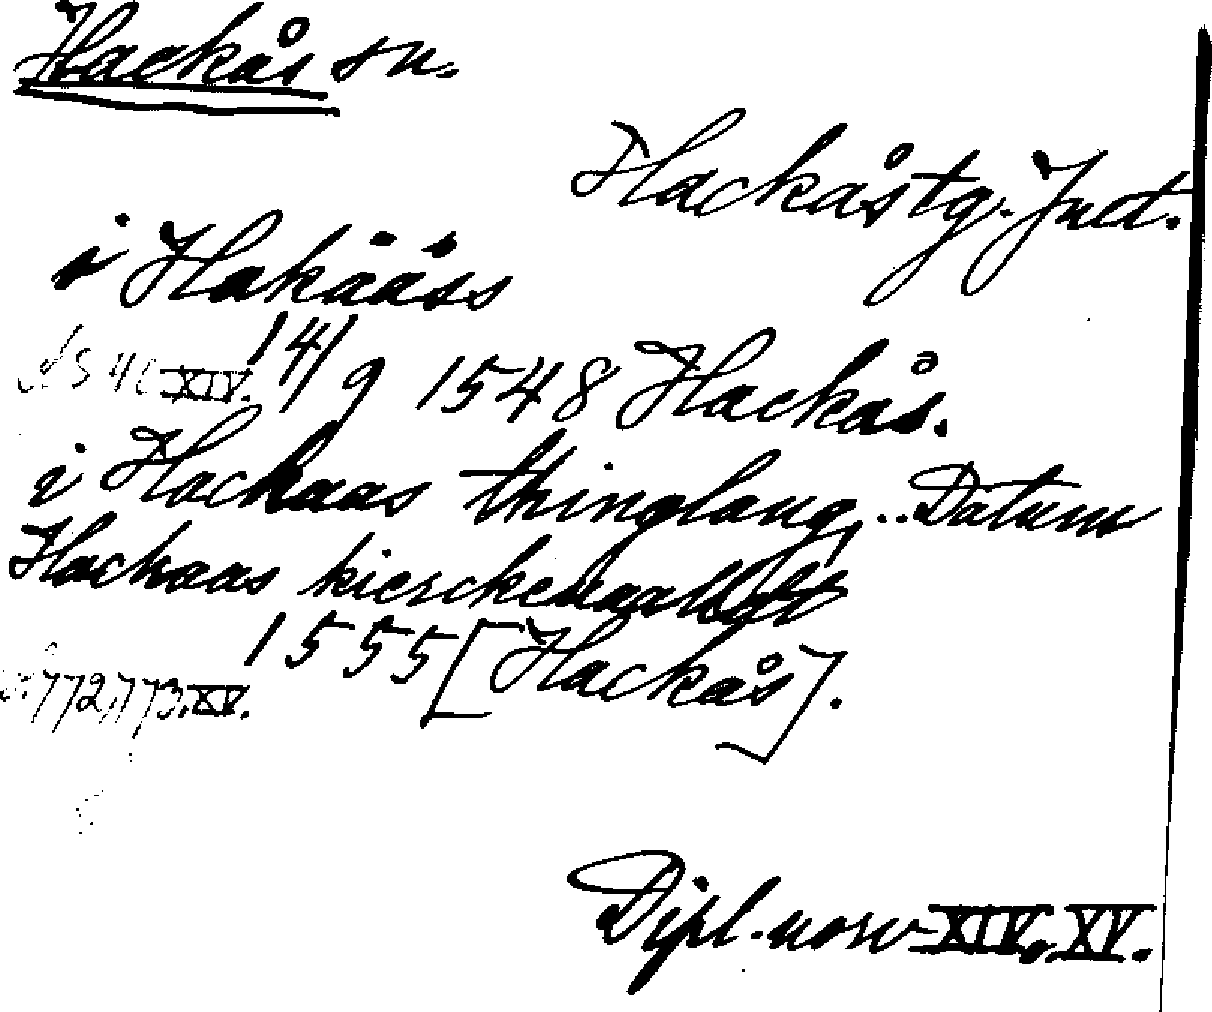 Hackås sn.
Hackås tg. Jmtl.
i Hakaåss
XIV. 14/9 1548 Hackås.
i Hackaas thinglaug, .. Datum
Hackaas kierckeuaalldt
1555 [Hackås].
772, 773. XV.
Dipl. norv XIV. XV.